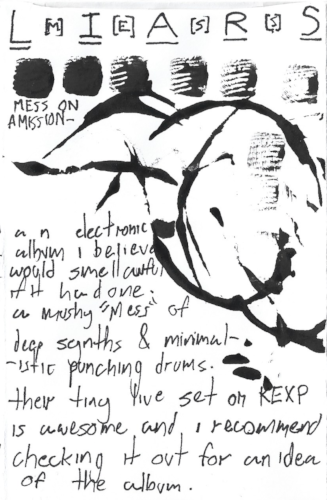 L [M] I [E] A [S] R [S] S
MESS ON
A MISSION-
an electronic
album i believe
would smell awful
if it had one.
a mushy "Mess" of
deep synths & minimal-
-istic punching drums.
their tiny live set on KEXP
is awesome and i recommend
checking it out for an idea
of the album.